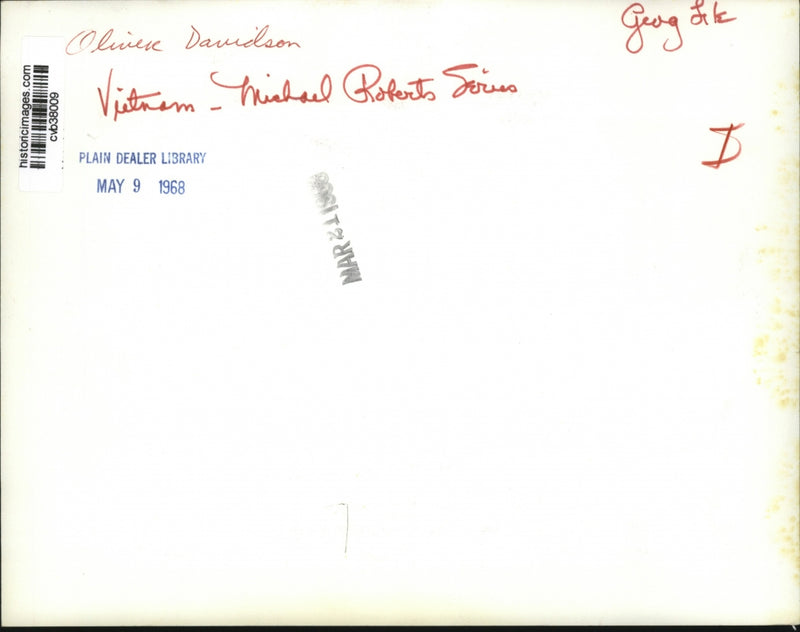 Oliver Davidson
Geog File
Vietnam - Michael Roberts Series
D
historicimages.com
cvb38009
PLAIN DEALER LIBRARY
MAY 9 1968
MAR